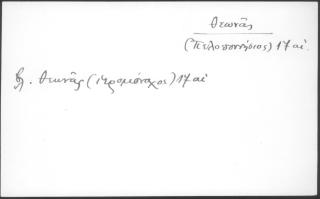 Θεωνᾶς
(Πελοποννήσιος) 17 αἰ.
βλ. Θεωνᾶς (ἱερομόναχος) 17 αἰ